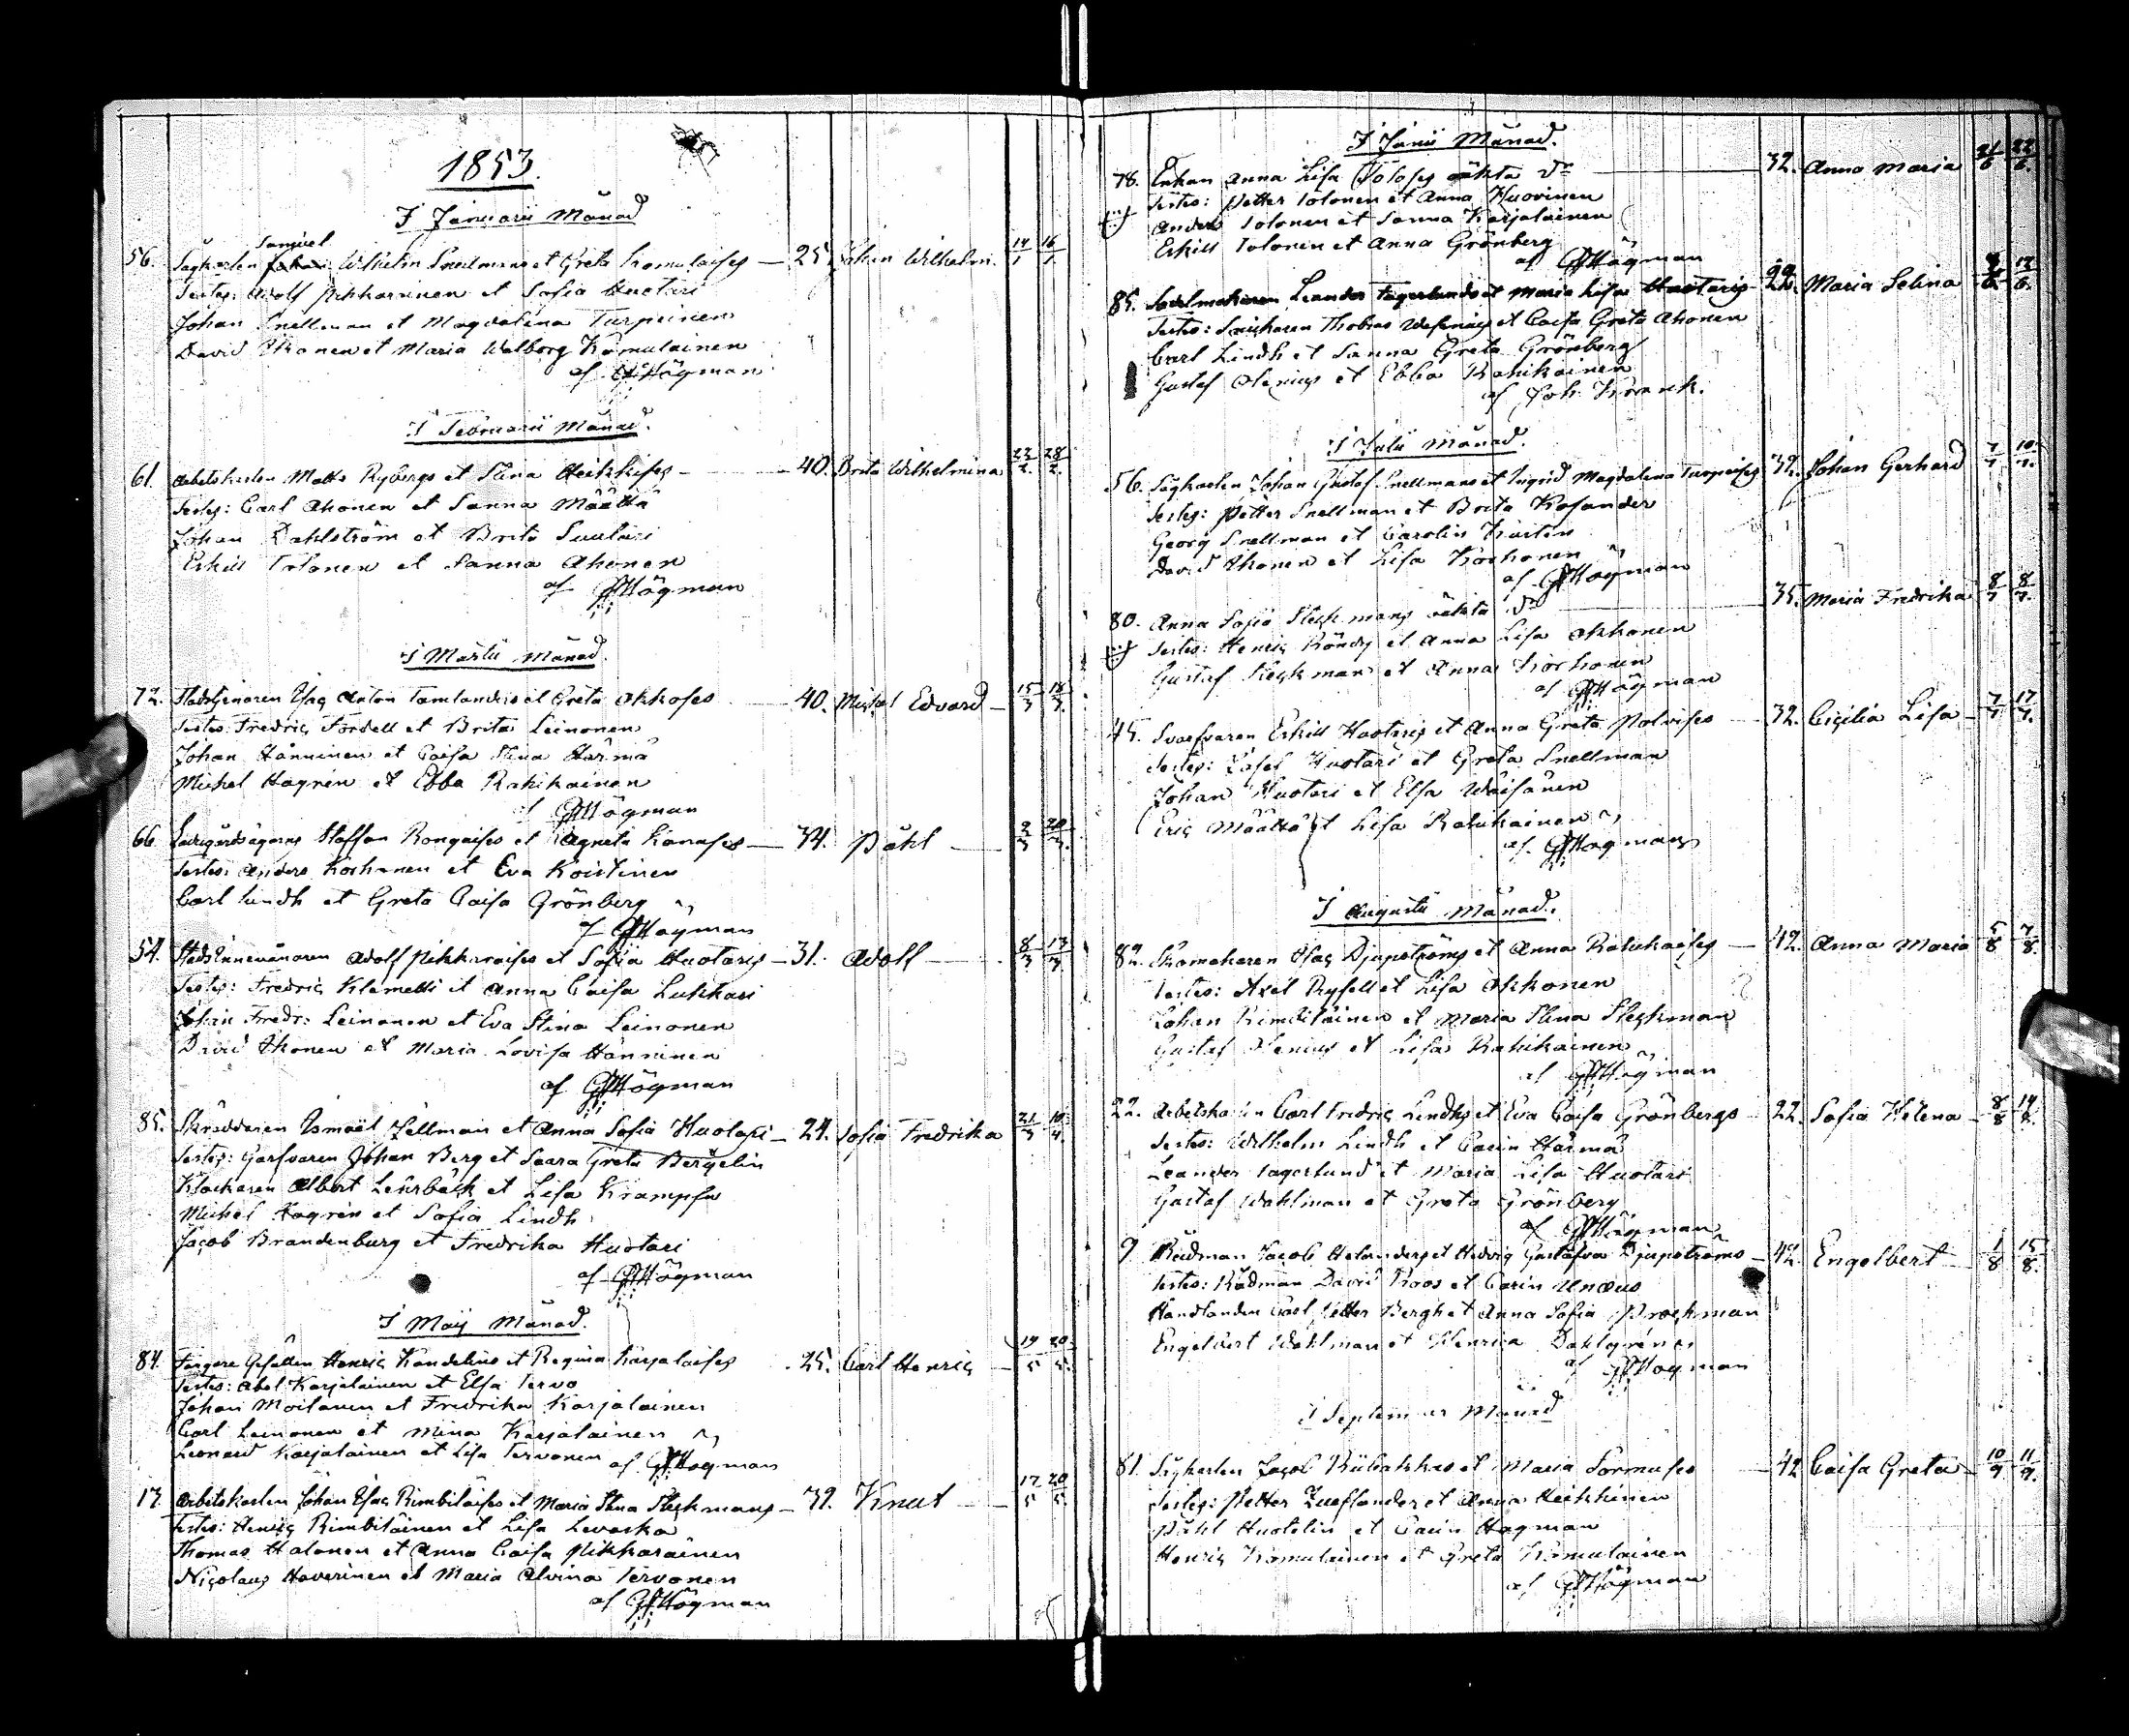 1853.
I Januarii Månad
Samuel
56. Sågkarlen Johan Wilhelm Snellmans et Greta Komulaises — 25. Johan Wilhelm. 14/1 16/1.
Testes: Adolf Pikkarainen et Sofia Huotari
Johan Snellman et Magdalena Turpeinen
David Ikonen et Maria Walborg Komulainen
af Högman
I Februarii Månad.
61. Arbetskarlen Matts Rybergs et Stina Heikkises — 40. Brita Wilhelmina 22/2. 28/2.
Testes: Carl Ahonen et Sanna Määttä
Johan Dahlström et Brita Suutari
Eskill Tolonen et Sanna Ahonen
af Högman
I Martii Månad.
72. Isac Anton Tamlanders et Greta Okkoses — 40. Michel Edvard — 15/3 18/3.
Testes: Fredric Fordell et Brita Leinonen
Johan Hänninen et Caisa Stina Härmä
Michel Hagrén et Ebba Rahikainen
af Högman
66. Staffan Rongaises et Agneta Kanases — 34. Påhl — 9/3 20/3.
Testes: Anders Korhonen et Eva Koistinen
Carl Lindh et Greta Caisa Grönberg
af Högman
54. Stads Innevånaren Adolf Pikkaraises et Sofia Huotaris — 31. Adolf — 8/3 13/3
Testes: Fredric Klemetti et Anna Caisa Lukkari
Johan Fredr: Leinonen et Eva Stina Leinonen
David Ikonen et Maria Lovisa Hänninen
af Högman
85. Skräddaren Ismael Fellman et Anna Sofia Huotari — 24. Sofia Fredrika 21/3 10/4
Testes: Garfvaren Johan Berg et Saara Greta Bergelin
Klockaren Albert Lehrbäck et Lisa Krampfa
Michel Hagrén et Sofia Lindh
Jacob Brandenburg et Fredrika Huotari
af Högman
I Maij Månad.
84. Färgare Gesällen Henric Kandelins et Regina Karjalaises . 25. Carl Henric — 19/5 20/5.
Testes: Abel Karjalainen et Elsa Tervo
Johan Moilanen et Fredrika Karjalainen
Carl Leinonen et Mina Karjalainen
Leonard Karjalainen et Lisa Tervonen af Högman
17. Arbetskarlen Johan Isac Rimbiläises et Maria Stina Steckmans — 39. Knut — 17/5 20/5.
Testes: Henric Rimbiläinen et Lisa Levaska
Thomas Halonen et Anna Caisa Pikkarainen
Nicolaus Haverinen et Maria Alvina Tervonen
af Högman
I Junii Månad.
78. Enkan Anna Lisa Toloses oäkta dr — 32. Anna Maria 21/6 22/6.
Testes: Petter Tolonen et Anna Huovinen
Anders Tolonen et Sanna Karjalainen
Eskill Tolonen et Anna Grönberg
af Högman
85. Sadelmakaren Leander Fagerlunds et Maria Lisa Huotaris — 22. Maria Selina 12/6.
Testes: Thobias et Caisa Greta Ahonen
Carl Lindh et Sanna Greta Grönberg
Gustaf Alenius et Ebba Rahikainen
af Joh. Krank.
I Julii Månad.
56. Sågkarlen Johan Gustaf Snellmans et Ingrid Magdalena Turpeises 39. Johan Gerhard 7/7 10/7.
Testes: Petter Snellman et Brita Kosander
Georg Snellman et Carolin Karsten
David Ikonen et Lisa Korhonen
af Högman
80. Anna Sofia Steckmans oäkta dr — 35. Maria Fredrika 8/7 8/7.
Testes: Henric et Anna Lisa Okkonen
Gustaf Steckman et Anna Korhonen
af Högman
45. Svarfvaren Eskill Huotaris et Anna Greta Polvises — 32. Cicilia Lisa — 7/7 17/7.
Testes: Josef Huotari et Greta Snellman
Johan Huotari et Elsa Wäisänen
Eric Määttä et Lisa Ratukainen
af Högman
I Augusti Månad.
82. Skomakaren Isac Djupströms et Anna Ratukaises — 42. Anna Maria 5/8 7/8.
Testes: Axel Ryfell et Lisa Okkonen
Johan Rimbiläinen et Maria Stina Steckman
Gustaf Alenius et Lisa Rahikainen
af Högman
22. Arbetskarlen Carl Fredric Lindhs et Eva Caisa Grönbergs — 22. Sofia Helena — 8/8 14/8.
Testes: Wilhelm Lindh et Carin Härmä
Leander Fagerlund et Maria Lisa Huotari
Gustaf Wahlman et Greta Grönberg
af Högman
9. Rådman Jacob Helanders et Hedvig Gustafva Djupströms — 42. Engelbert — 1/8 15/8.
Testes: Rådman David Roos et Carin
Handlanden Carl Petter Bergh et Anna Sofia Brockman
Engelbert Wahlman et Henrica Dahlgrén
af Högman
I September Månad
81. Sågkarlen Jacob et Maria Sormuses — 42 Caisa Greta — 10/9 11/9.
Testes: Petter et Anna Heikkinen
Påhl Huotelin et Carin Hagman
Henric Komulainen et Greta Komulainen
af Högman